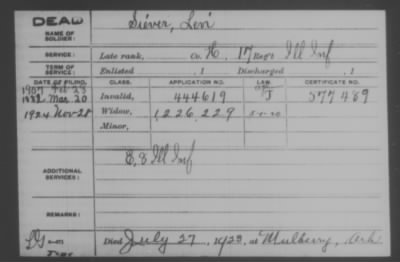 DEAD
NAME OF SOLDIER: Siever, Levi
SERVICE: Late rank, Co. H, 17 Reg't Ill Inf
TERM OF SERVICE: Enlisted , 1 Discharged , 1
DATE OF FILING. CLASS. APPLICATION NO. LAW. CERTIFICATE NO.
1907 Feb 23
1882 Mar 20 Invalid, 444619 J 377489
1924 Nov 28 Widow, 1,226,229
Minor,
E, 8 Ill Inf
ADDITIONAL SERVICES:
REMARKS:
Died July 27, 1923, at Mulberry, Ark